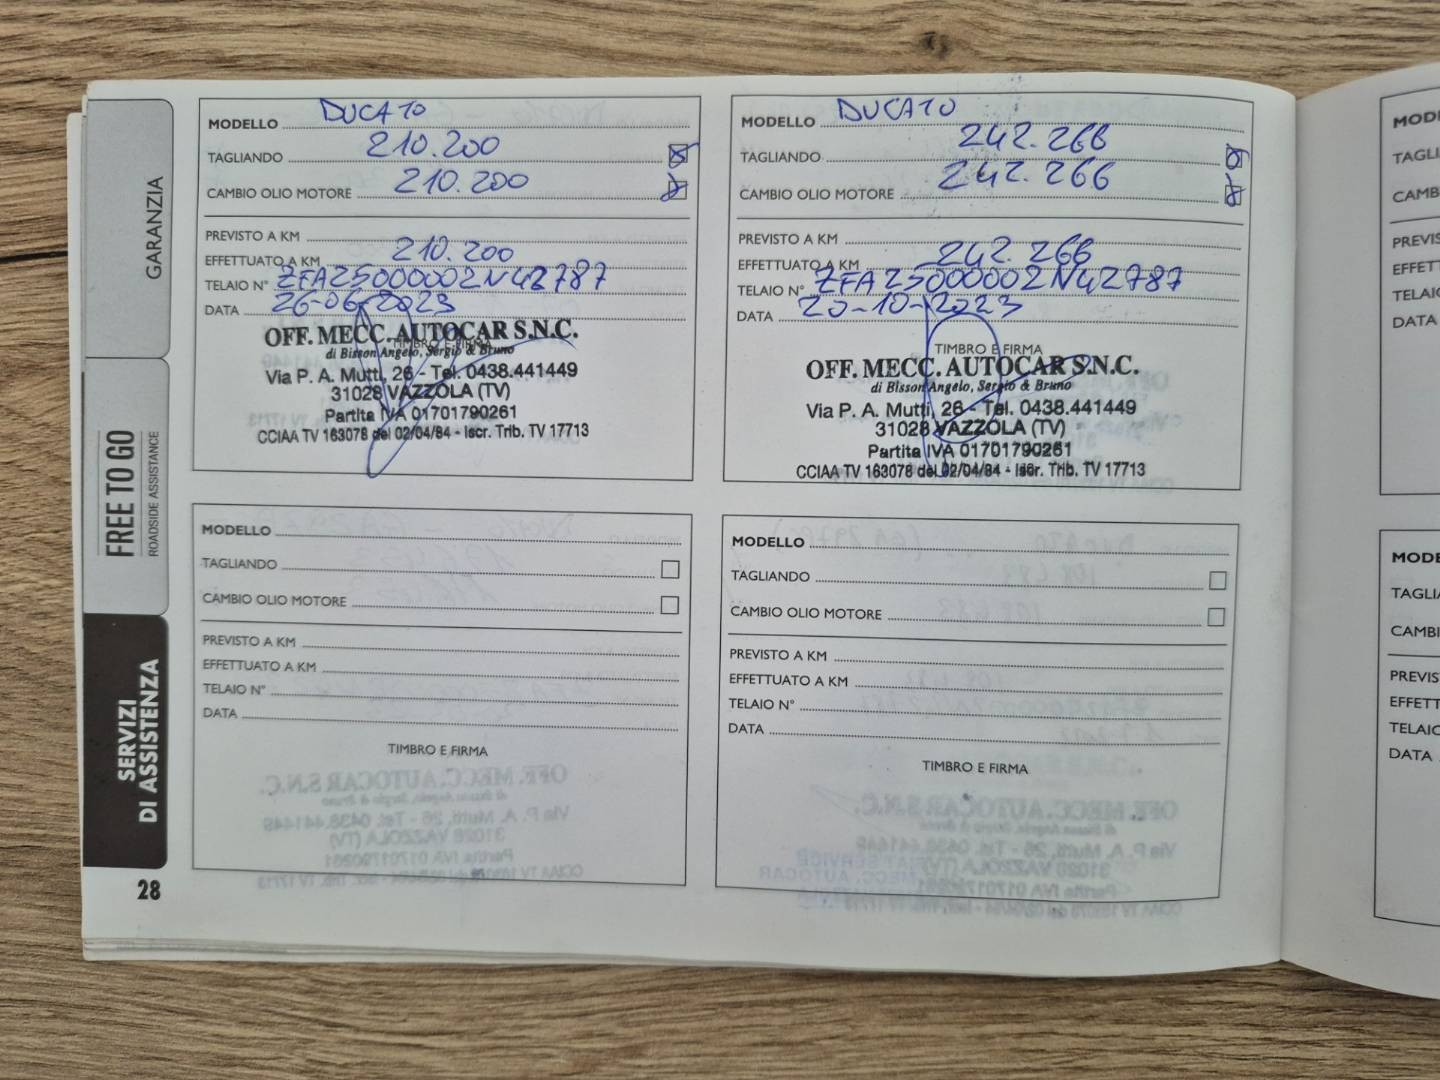 GARANZIA
FREE TO GO
ROADSIDE ASSISTANCE
SERVIZI
DI ASSISTENZA
28
MODELLO DUCATO
TAGLIANDO 210.200
CAMBIO OLIO MOTORE 210.200
PREVISTO A KM
EFFETTUATO A KM 210.200
TELAIO N° ZFA25000002N42787
DATA 26-06-2023
TIMBRO E FIRMA
OFF. MECC. AUTOCAR S.N.C.
di Bisson Angelo, Sergio & Bruno
Via P. A. Mutti, 26 - Tel. 0438.441449
31028 VAZZOLA (TV)
Partita IVA 01701790261
CCIAA TV 163078 del 02/04/84 - Iscr. Trib. TV 17713
MODELLO DUCATO
TAGLIANDO 242.266
CAMBIO OLIO MOTORE 242.266
PREVISTO A KM
EFFETTUATO A KM 242.266
TELAIO N° ZFA25000002N42787
DATA 20-10-2023
TIMBRO E FIRMA
OFF. MECC. AUTOCAR S.N.C.
di Bisson Angelo, Sergio & Bruno
Via P. A. Mutti, 26 - Tel. 0438.441449
31028 VAZZOLA (TV)
Partita IVA 01701790261
CCIAA TV 163078 del 02/04/84 - Iscr. Trib. TV 17713
MODELLO
TAGLIANDO
CAMBIO OLIO MOTORE
PREVISTO A KM
EFFETTUATO A KM
TELAIO N°
DATA
TIMBRO E FIRMA
MODELLO
TAGLIANDO
CAMBIO OLIO MOTORE
PREVISTO A KM
EFFETTUATO A KM
TELAIO N°
DATA
TIMBRO E FIRMA
MODE
TAGLI
CAMB
PREVIS
EFFETT
TELAIO
DATA
MODE
TAGLIA
CAMBI
PREVIS
EFFETT
TELAIO
DATA